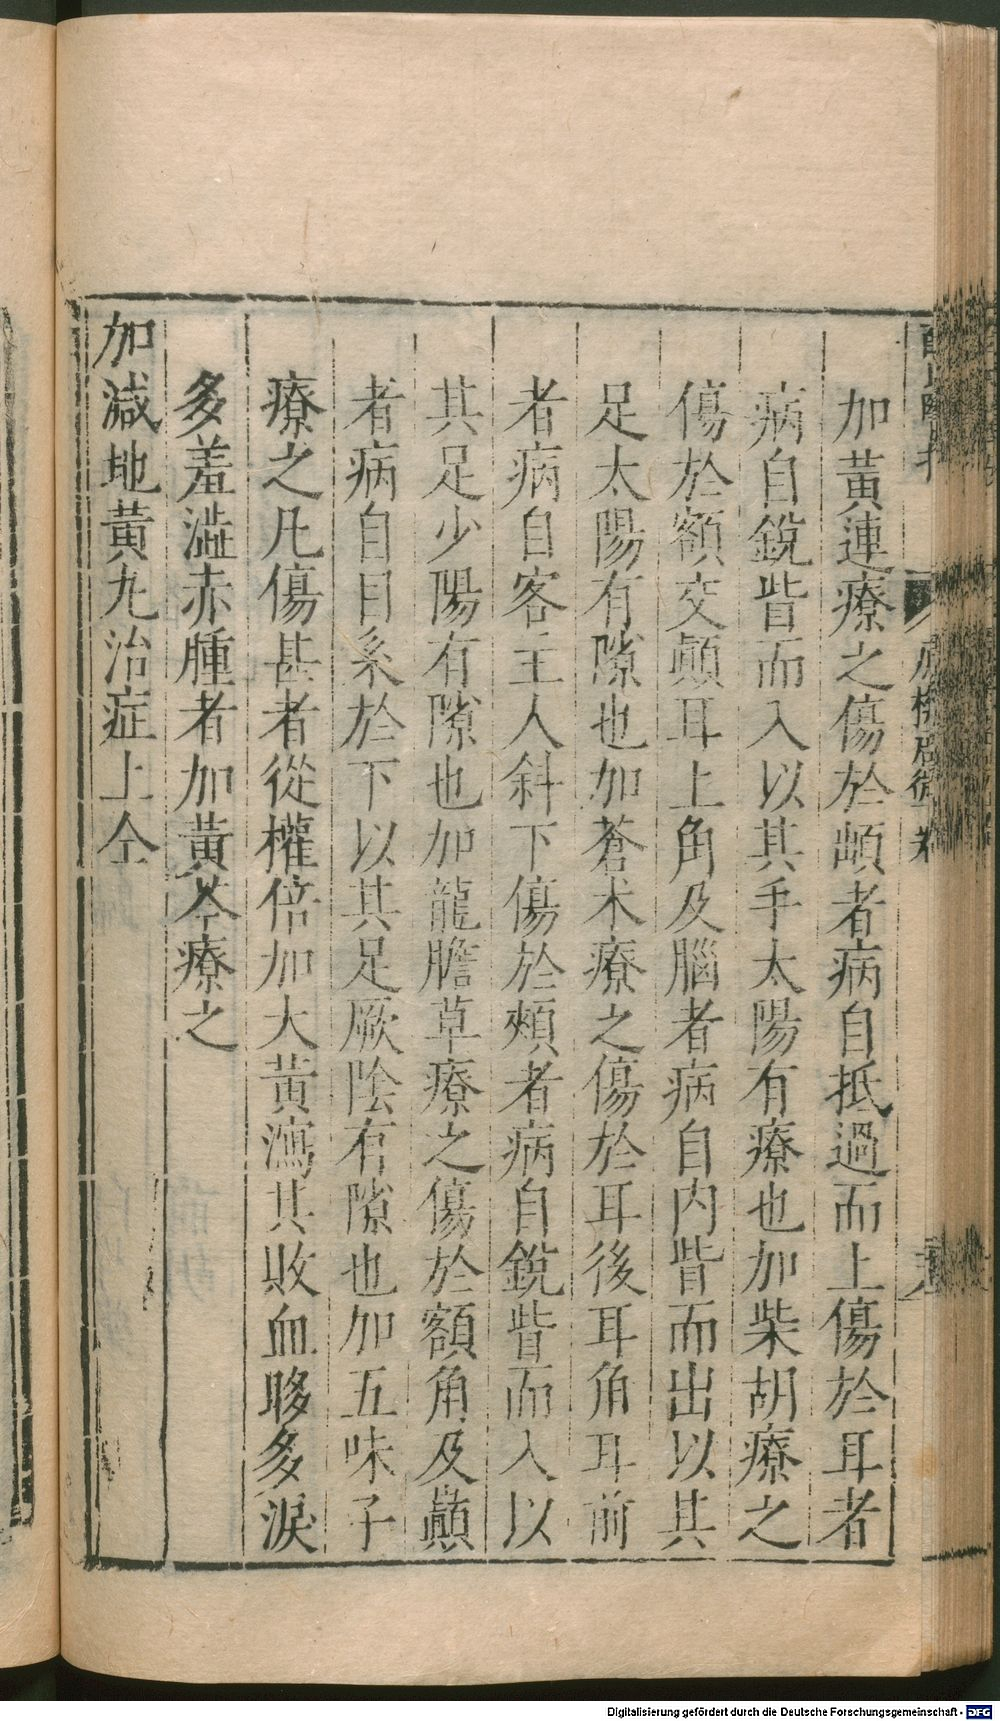 加黃連療之傷於䪼者病自抵過而上傷於耳者
病自銳眥而入以其手太陽有療也加柴胡療之
傷於額交巔耳上角及腦者病自內眥而出以其
足太陽有隙也加蒼朮療之傷於耳後耳角耳前
者病自客主人斜下傷於頰者病自銳眥而入以
其足少陽有隙也加龍膽草療之傷於額角及巔
者病自目系於下以其足厥陰有隙也加五味子
療之凡傷甚者從權倍加大黃瀉其敗血眵多淚
多羞澁赤腫者加黃芩療之
加減地黃九治症上仝
Digitalisierung gefördert durch die Deutsche Forschungsgemeinschaft - DFG